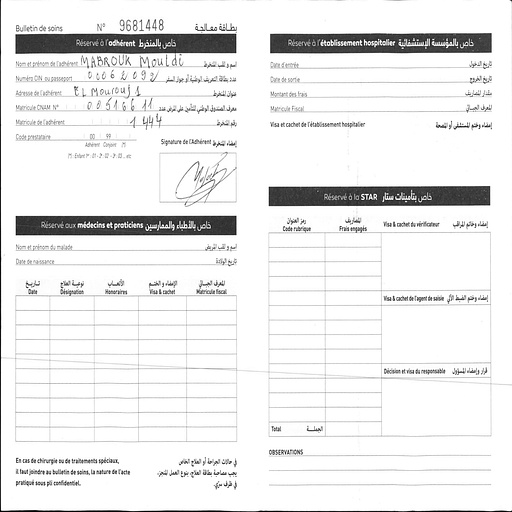 Bulletin de soins N° 9681448 بطاقة معالجة
Réservé à l'adhérent خاص بالمنخرط
Nom et prénom de l'adhérent MABROUK Mouldi اسم و لقب المنخرط
Numéro CIN. ou passeport عدد بطاقة التعريف الوطنية أو جواز السفر
Adresse de l'adhérent EL Mourouj 1 عنوان المنخرط
Matricule CNAM N°
Matricule de l'adhérent 1 444 رقم المنخرط
Code prestataire 00 99 (*)
Adhérent Conjoint (*)
Signature de l'Adhérent إمضاء المنخرط
Réservé aux médecins et praticiens خاص بالأطباء والممارسين
Nom et prénom du malade اسم و لقب المريض
Date de naissance تاريخ الولادة
تاريخ نوعية العلاج الأتعاب الإمضاء و الختم المعرف الجبائي
Date Désignation Honoraires Visa & cachet Matricule fiscal
En cas de chirurgie ou de traitements spéciaux,
il faut joindre au bulletin de soins, la nature de l'acte
pratiqué sous pli confidentiel.
في حالات الجراحة أو العلاج الخاص
يجب مصاحبة بطاقة العلاج، بنوع العمل المنجز،
في ظرف سري.
Réservé à l'établissement hospitalier خاص بالمؤسسة الإستشفائية
Date d'entrée تاريخ الدخول
Date de sortie تاريخ الخروج
Montant des frais مقدار المصاريف
Matricule Fiscal المعرف الجبائي
Visa et cachet de l'établissement hospitalier إمضاء وختم المستشفى أو المصحة
Réservé à la STAR خاص بتأمينات ستار
رمز العنوان المصاريف
Code rubrique Frais engagés
Visa & cachet du vérificateur إمضاء وخاتم المراقب
Visa & cachet de l'agent de saisie إمضاء وختم الضبط الآلي
Décision et visa du responsable قرار وإمضاء المسؤول
Total الجملة
OBSERVATIONS